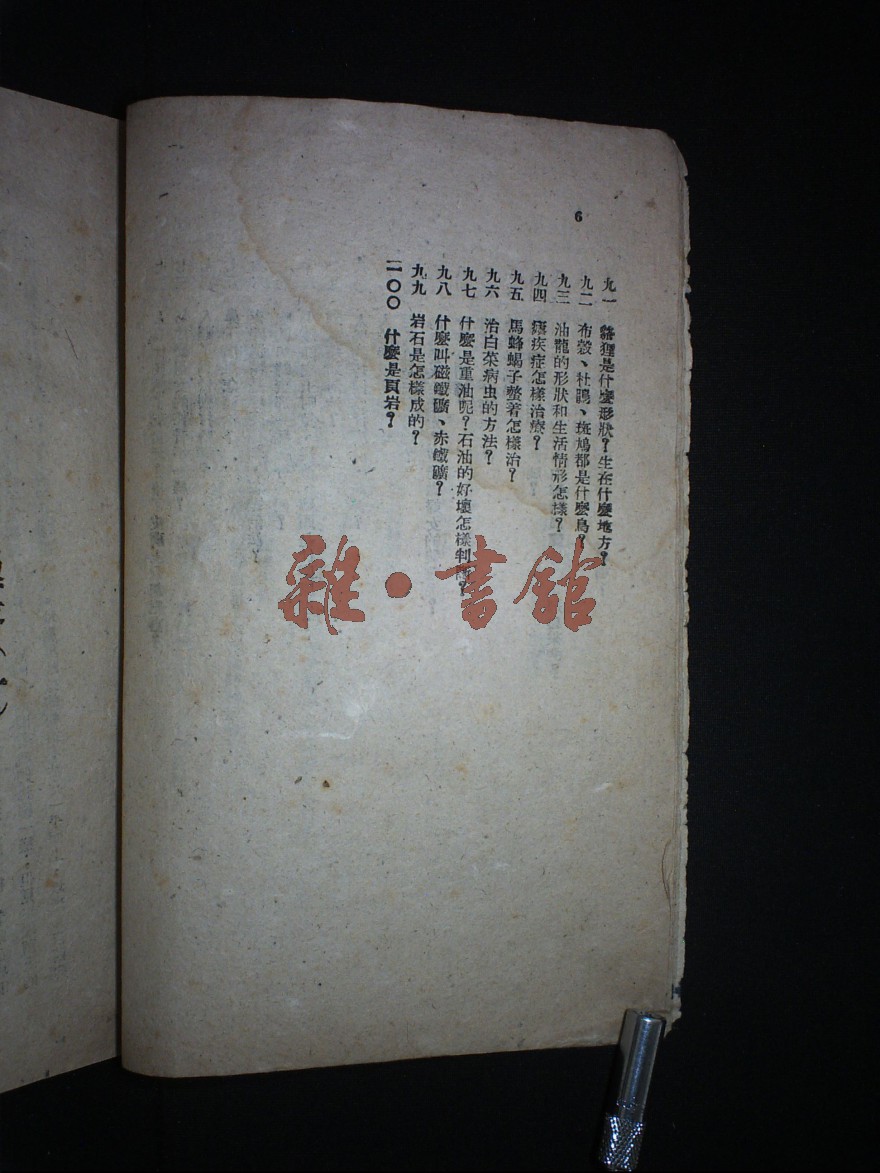 6
九一 狸是什麼形狀？生在什麼地方？
九二 布穀、杜鵑、斑鳩都是什麼鳥？
九三 油龍的形狀和生活情形怎樣？
九四 疾症怎樣治療？
九五 馬蜂蝎子螫着怎樣治？
九六 治白菜病虫的方法？
九七 什麼是重油呢？石油的好壞怎樣判？
九八 什麼叫磁鐵礦、赤鐵礦？
九九 岩石是怎樣成的？
一〇〇 什麼是頁岩？
雜·書館